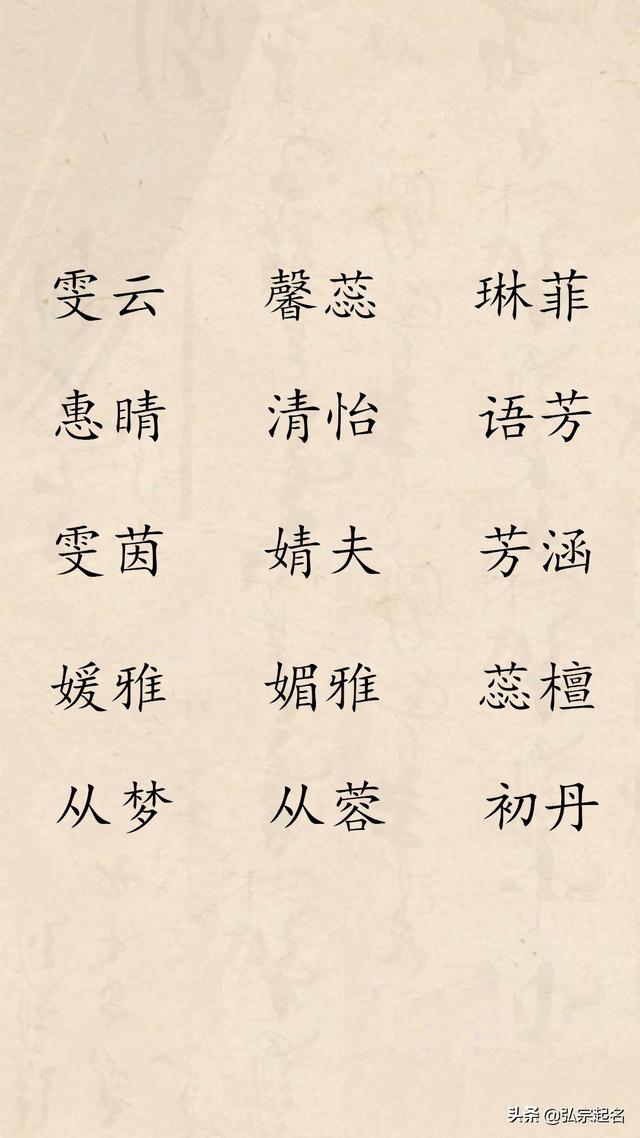 雯云 馨蕊 琳菲
惠晴 清怡 语芳
雯茵 婧夫 芳涵
媛雅 媚雅 蕊檀
从梦 从蓉 初丹
头条 @弘宗起名